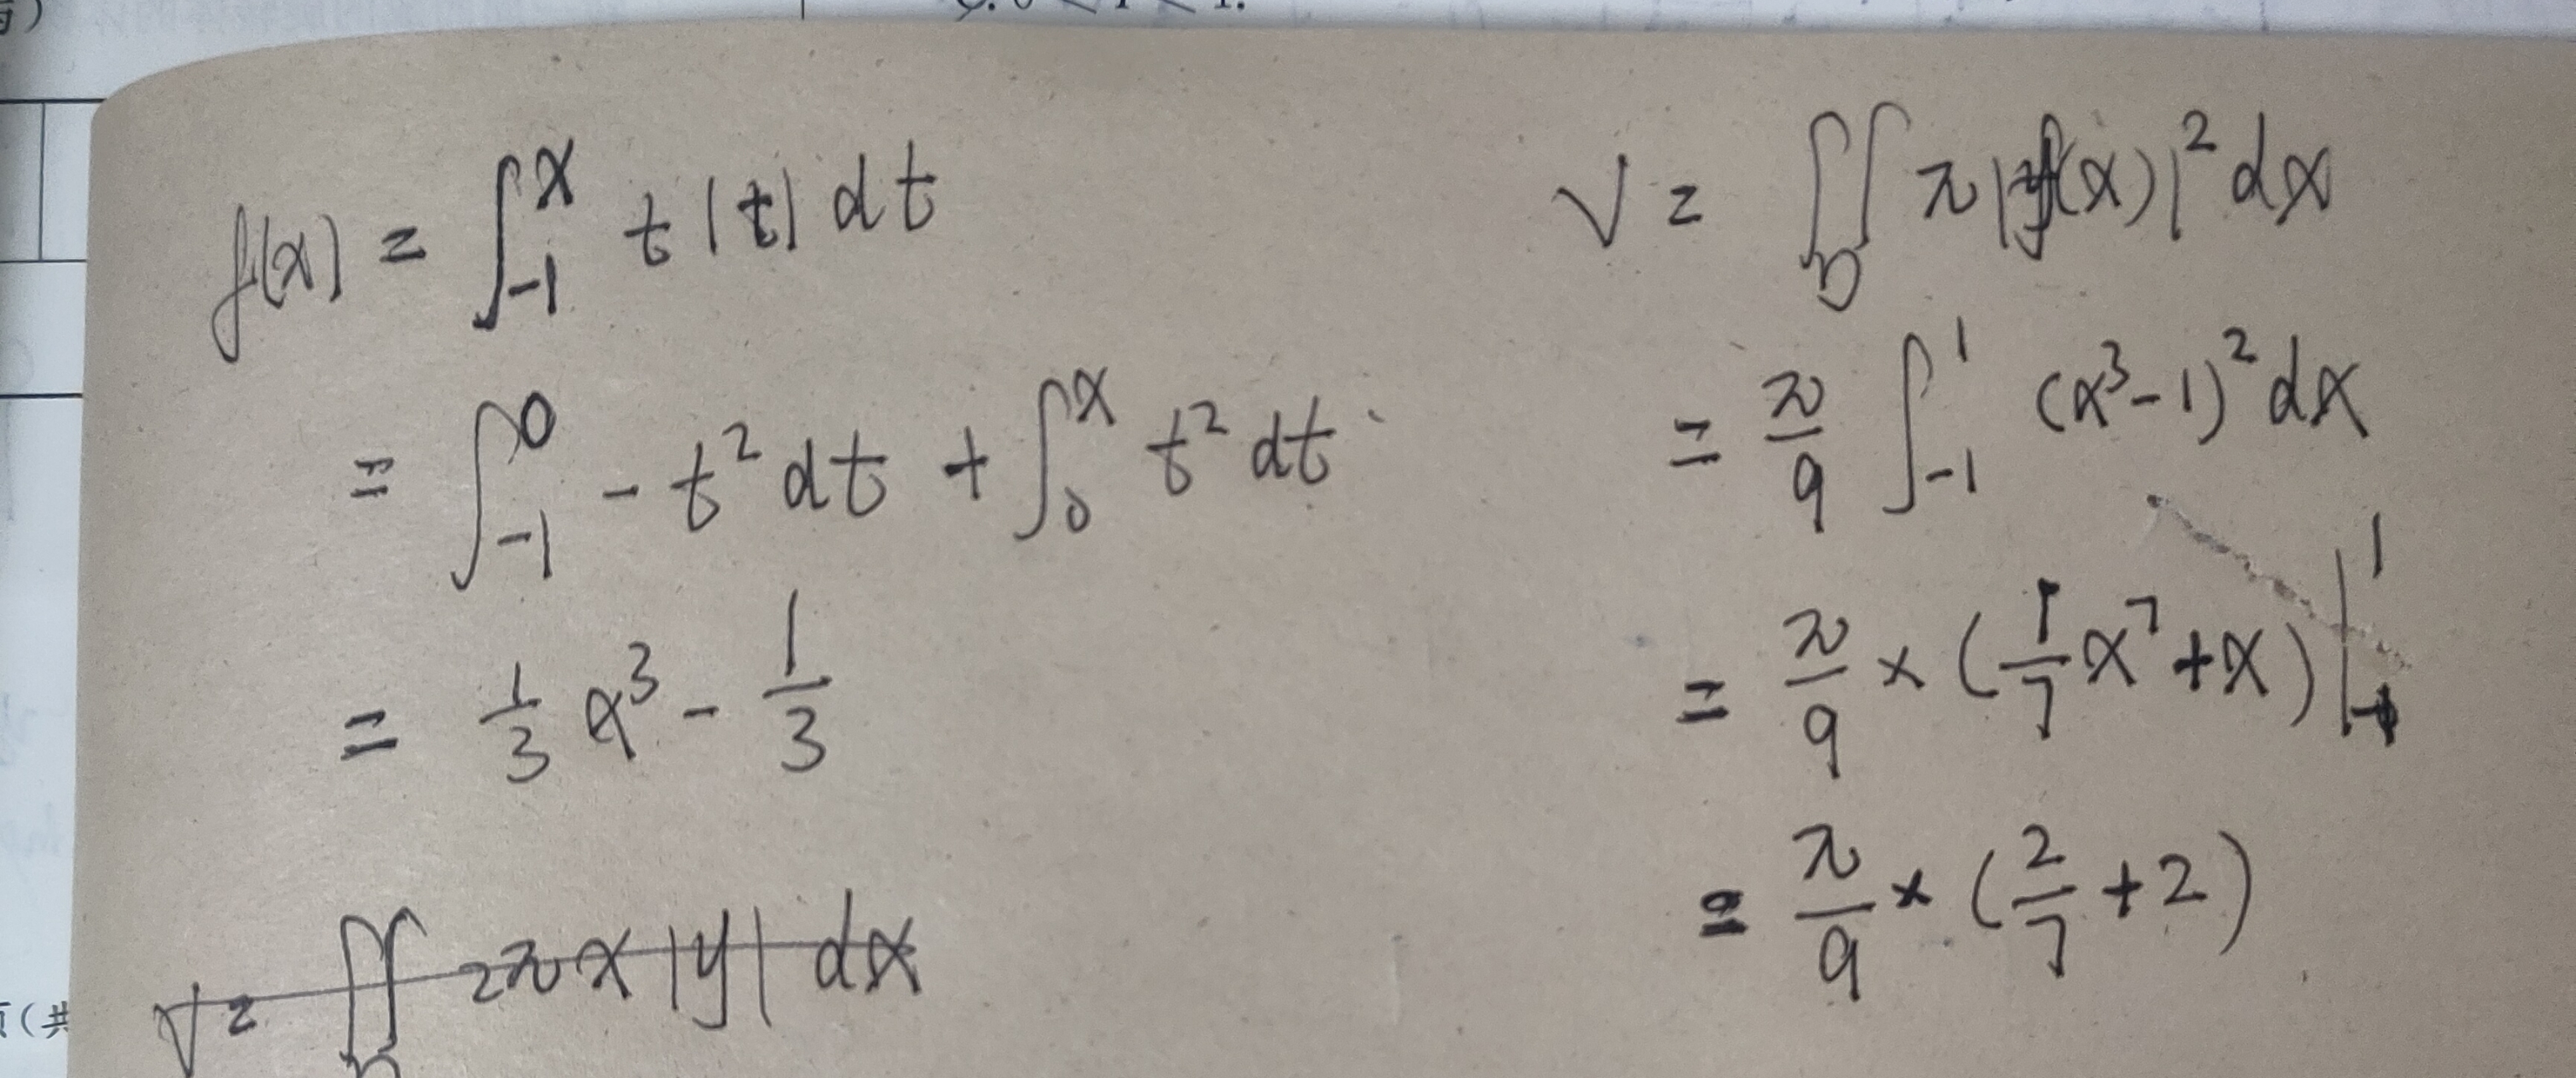 f(x) = ∫_{-1}^{x} t|t| dt
= ∫_{-1}^{0} -t² dt + ∫_{0}^{x} t² dt
= 1/3 x³ - 1/3
V = ∬ 2πx|y| dx
V = ∬_D π|f(x)|² dx
= π/9 ∫_{-1}^{1} (x³-1)² dx
= π/9 × (1/7 x⁷ + x) |_{-1}^{1}
= π/9 × (2/7 + 2)
(共